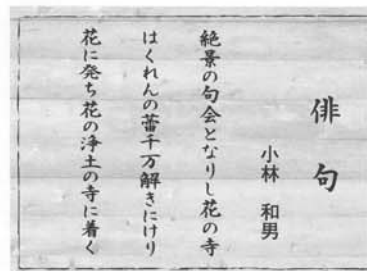 俳句
小林 和男
絶景の句会となりし花の寺
はくれんの蕾千万解きにけり
花に発ち花の浄土の寺に着く